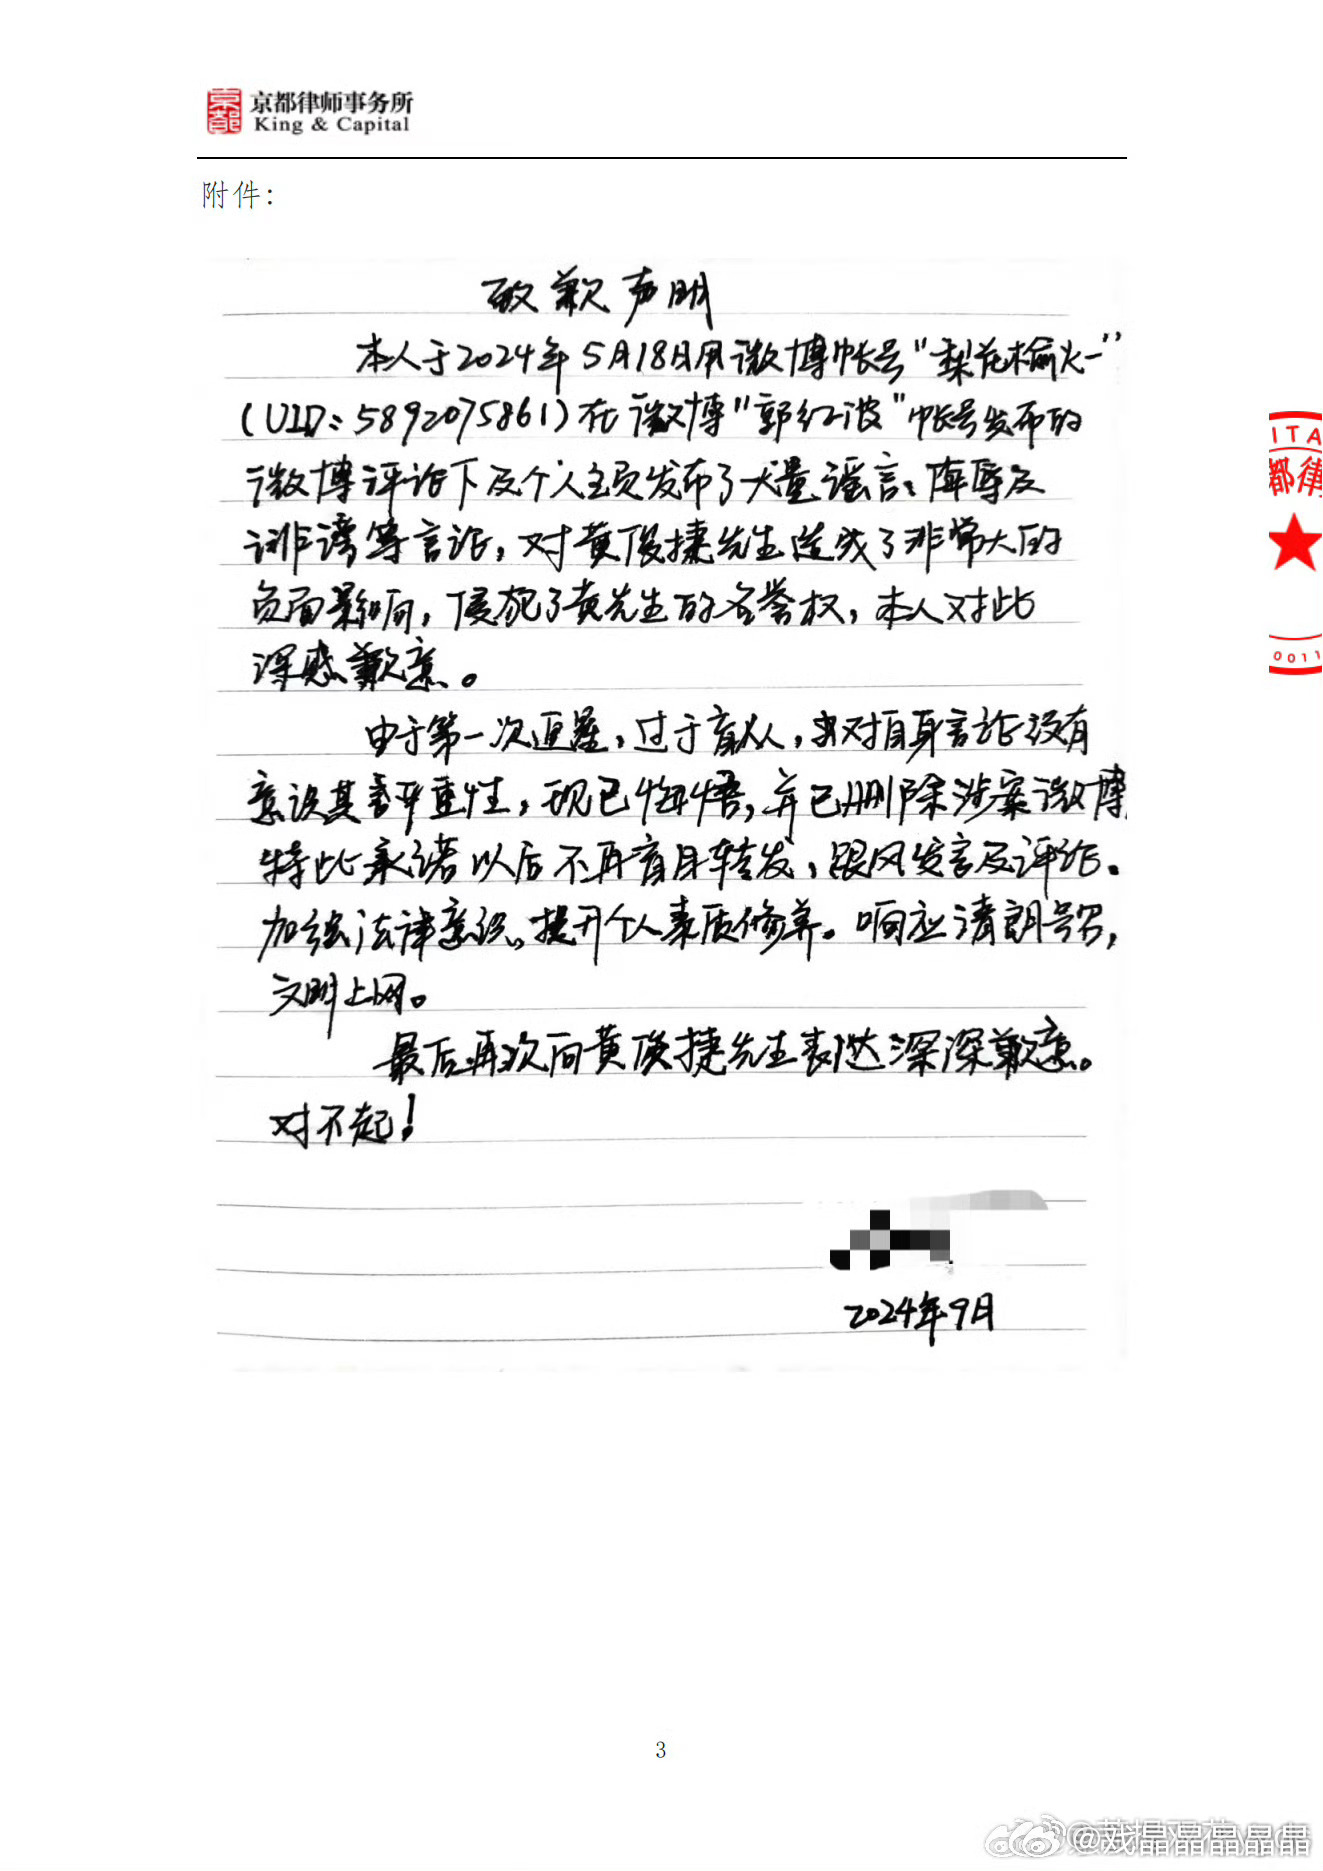 京都律师事务所
King & Capital
附件：
致歉声明
本人于2024年5月18日用微博帐号“梨花榆火一”
（UID：5892075861）在微博“郭红波”帐号发布的
微博评论下及个人主页发布了大量谣言、侮辱及
诽谤等言论，对黄俊捷先生造成了非常大的
负面影响，侵犯了黄先生的名誉权，本人对此
深感歉意。
由于第一次追星，过于盲从，对自身言论没有
意识其严重性，现已悔悟，并已删除涉案微博
特此承诺以后不再盲目转发，跟风发言及评论。
加强法律意识、提升个人素质修养。响应清朗号召，
文明上网。
最后再次向黄俊捷先生表达深深歉意。
对不起！
2024年9月
ITA
都律
0011
3